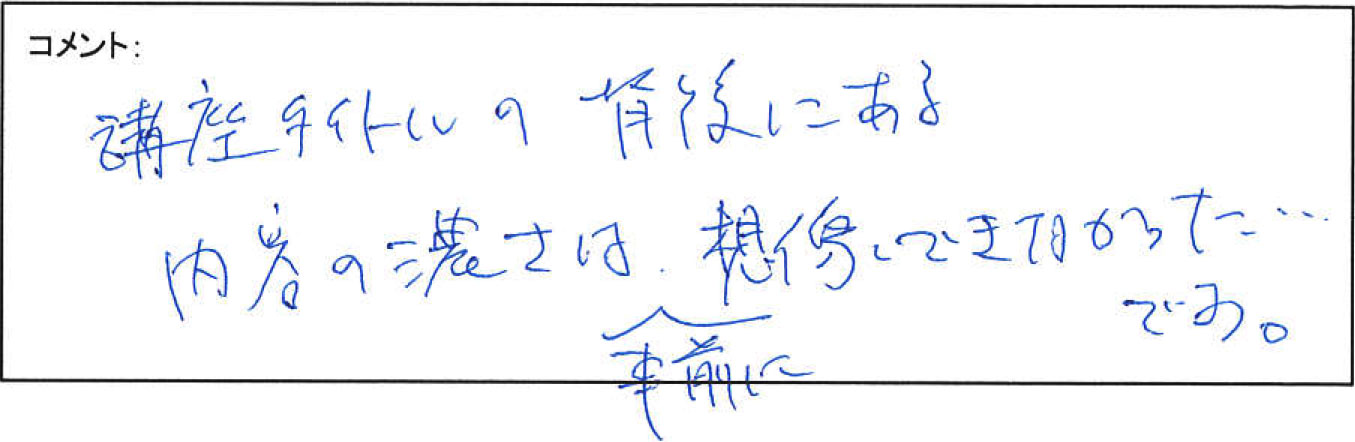 コメント:
講座タイトルの背後にある
内容の濃さは、想像できなかった…
です。
事前に